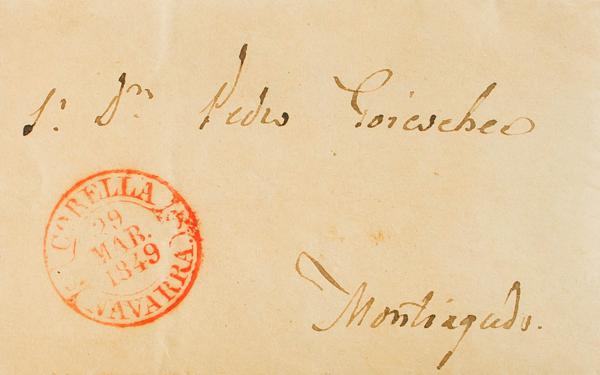 Sr. Dn. Pedro Goicochea
CORELLA
29
MAR.
1849
NAVARRA
Montiagudo.